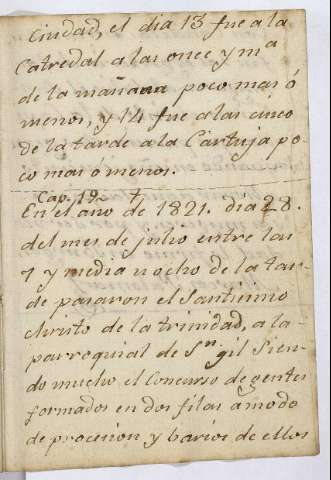 Ciudad, el dia 13 fue a la
Catredal a las once y mª
de la mañana poco mas ó
menos, y 14 fue a las cinco
de la tarde a la Cartuja po-
co mas ó menos.
Cap. 19. +
En el año de 1821. dia 28.
del mes de julio entre las
7 y media u ocho de la tar-
de pasaron el Santisimo
christo de la trinidad, a la
parrequial de Sⁿ gil Sien-
do mucho el Concurso de gentes
formados en dos filas a modo
de procesion y barios de ellos